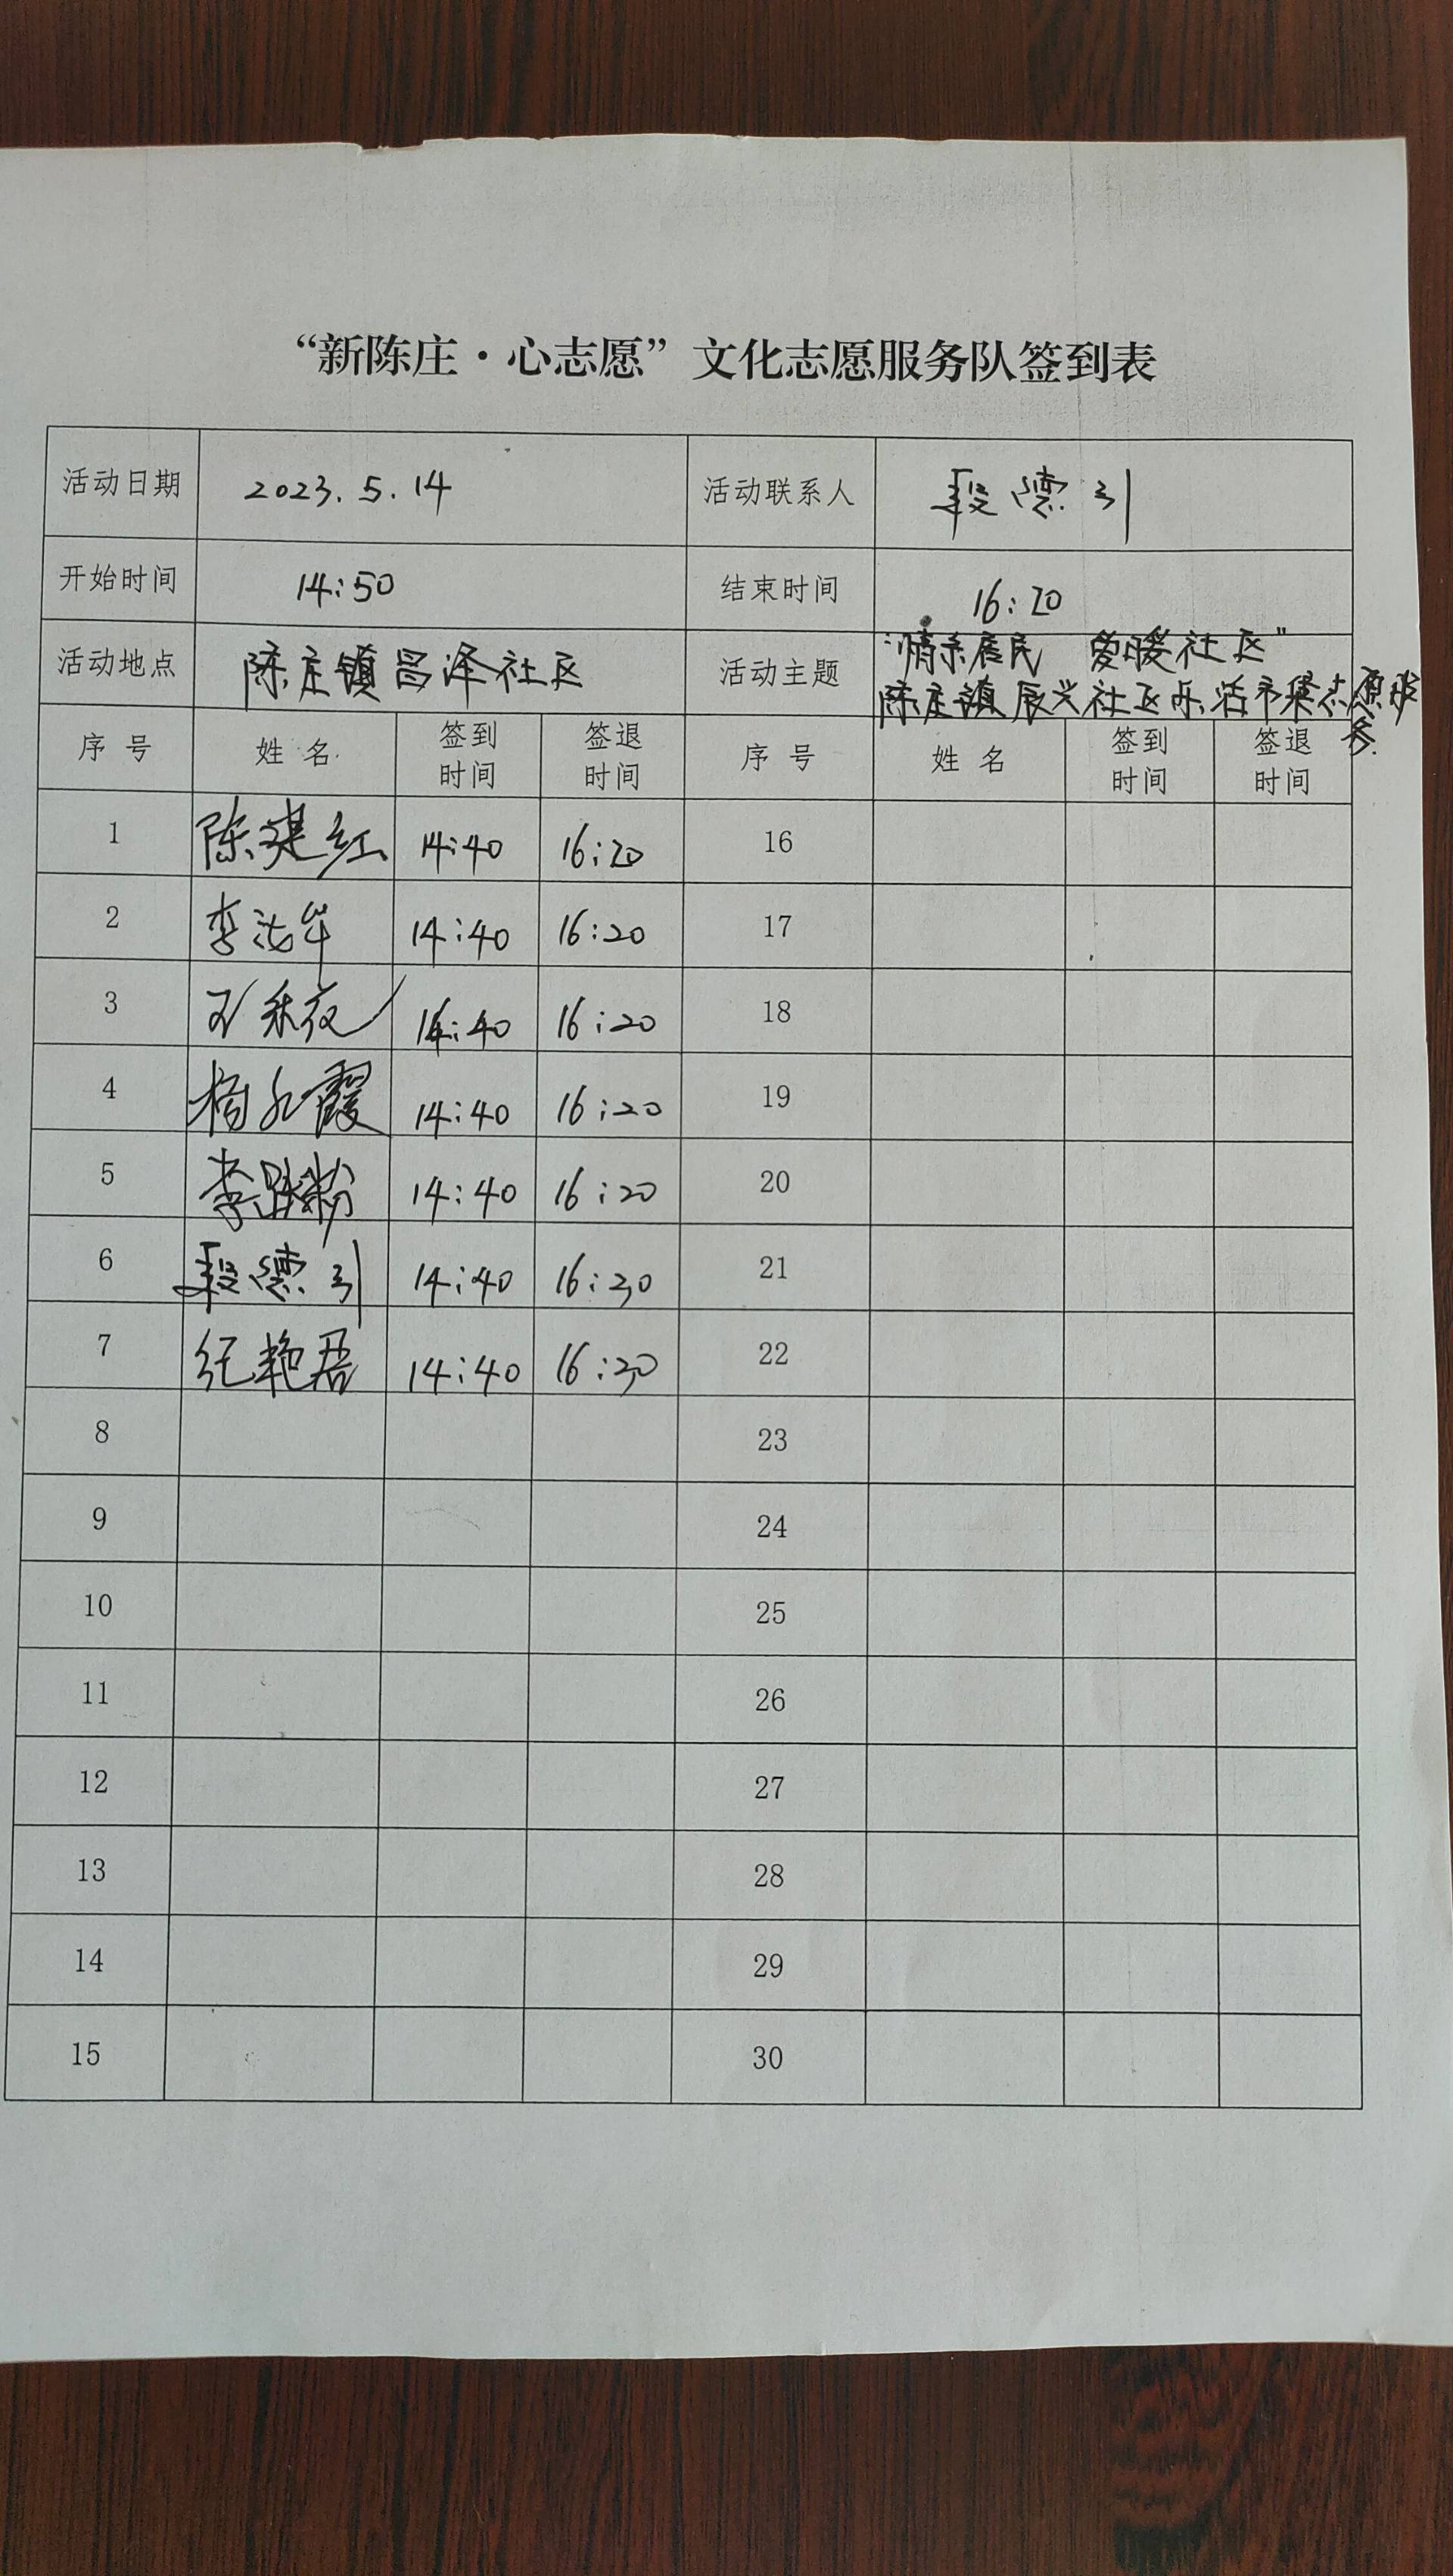 “新陈庄·心志愿”文化志愿服务队签到表
活动日期 2023.5.14 活动联系人 段德引
开始时间 14:50 结束时间 16:20
活动地点 陈庄镇昌泽社区 活动主题 “情系居民 爱暖社区”
陈庄镇辰兴社区乐活市集志愿服务
序号 姓名 签到时间 签退时间 序号 姓名 签到时间 签退时间
1 陈建红 14:40 16:20 16
2 李 14:40 16:20 17
3 14:40 16:20 18
4 杨 霞 14:40 16:20 19
5 李 粉 14:40 16:20 20
6 段德引 14:40 16:20 21
7 纪艳君 14:40 16:20 22
8 23
9 24
10 25
11 26
12 27
13 28
14 29
15 30